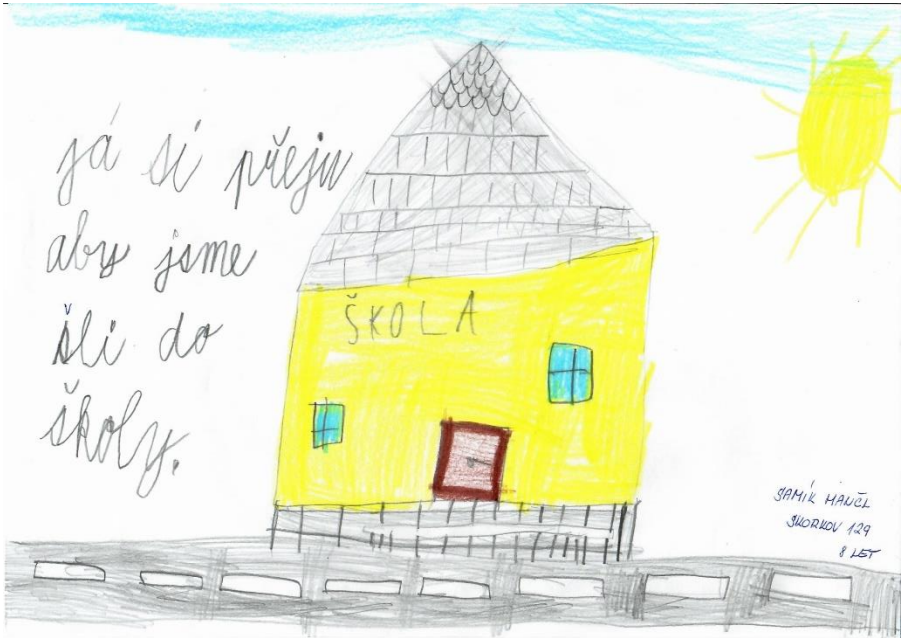 já si přeju
aby jsme
šli do
školy.
ŠKOLA
SAMÍK MANČL
SKORKOV 129
8 LET